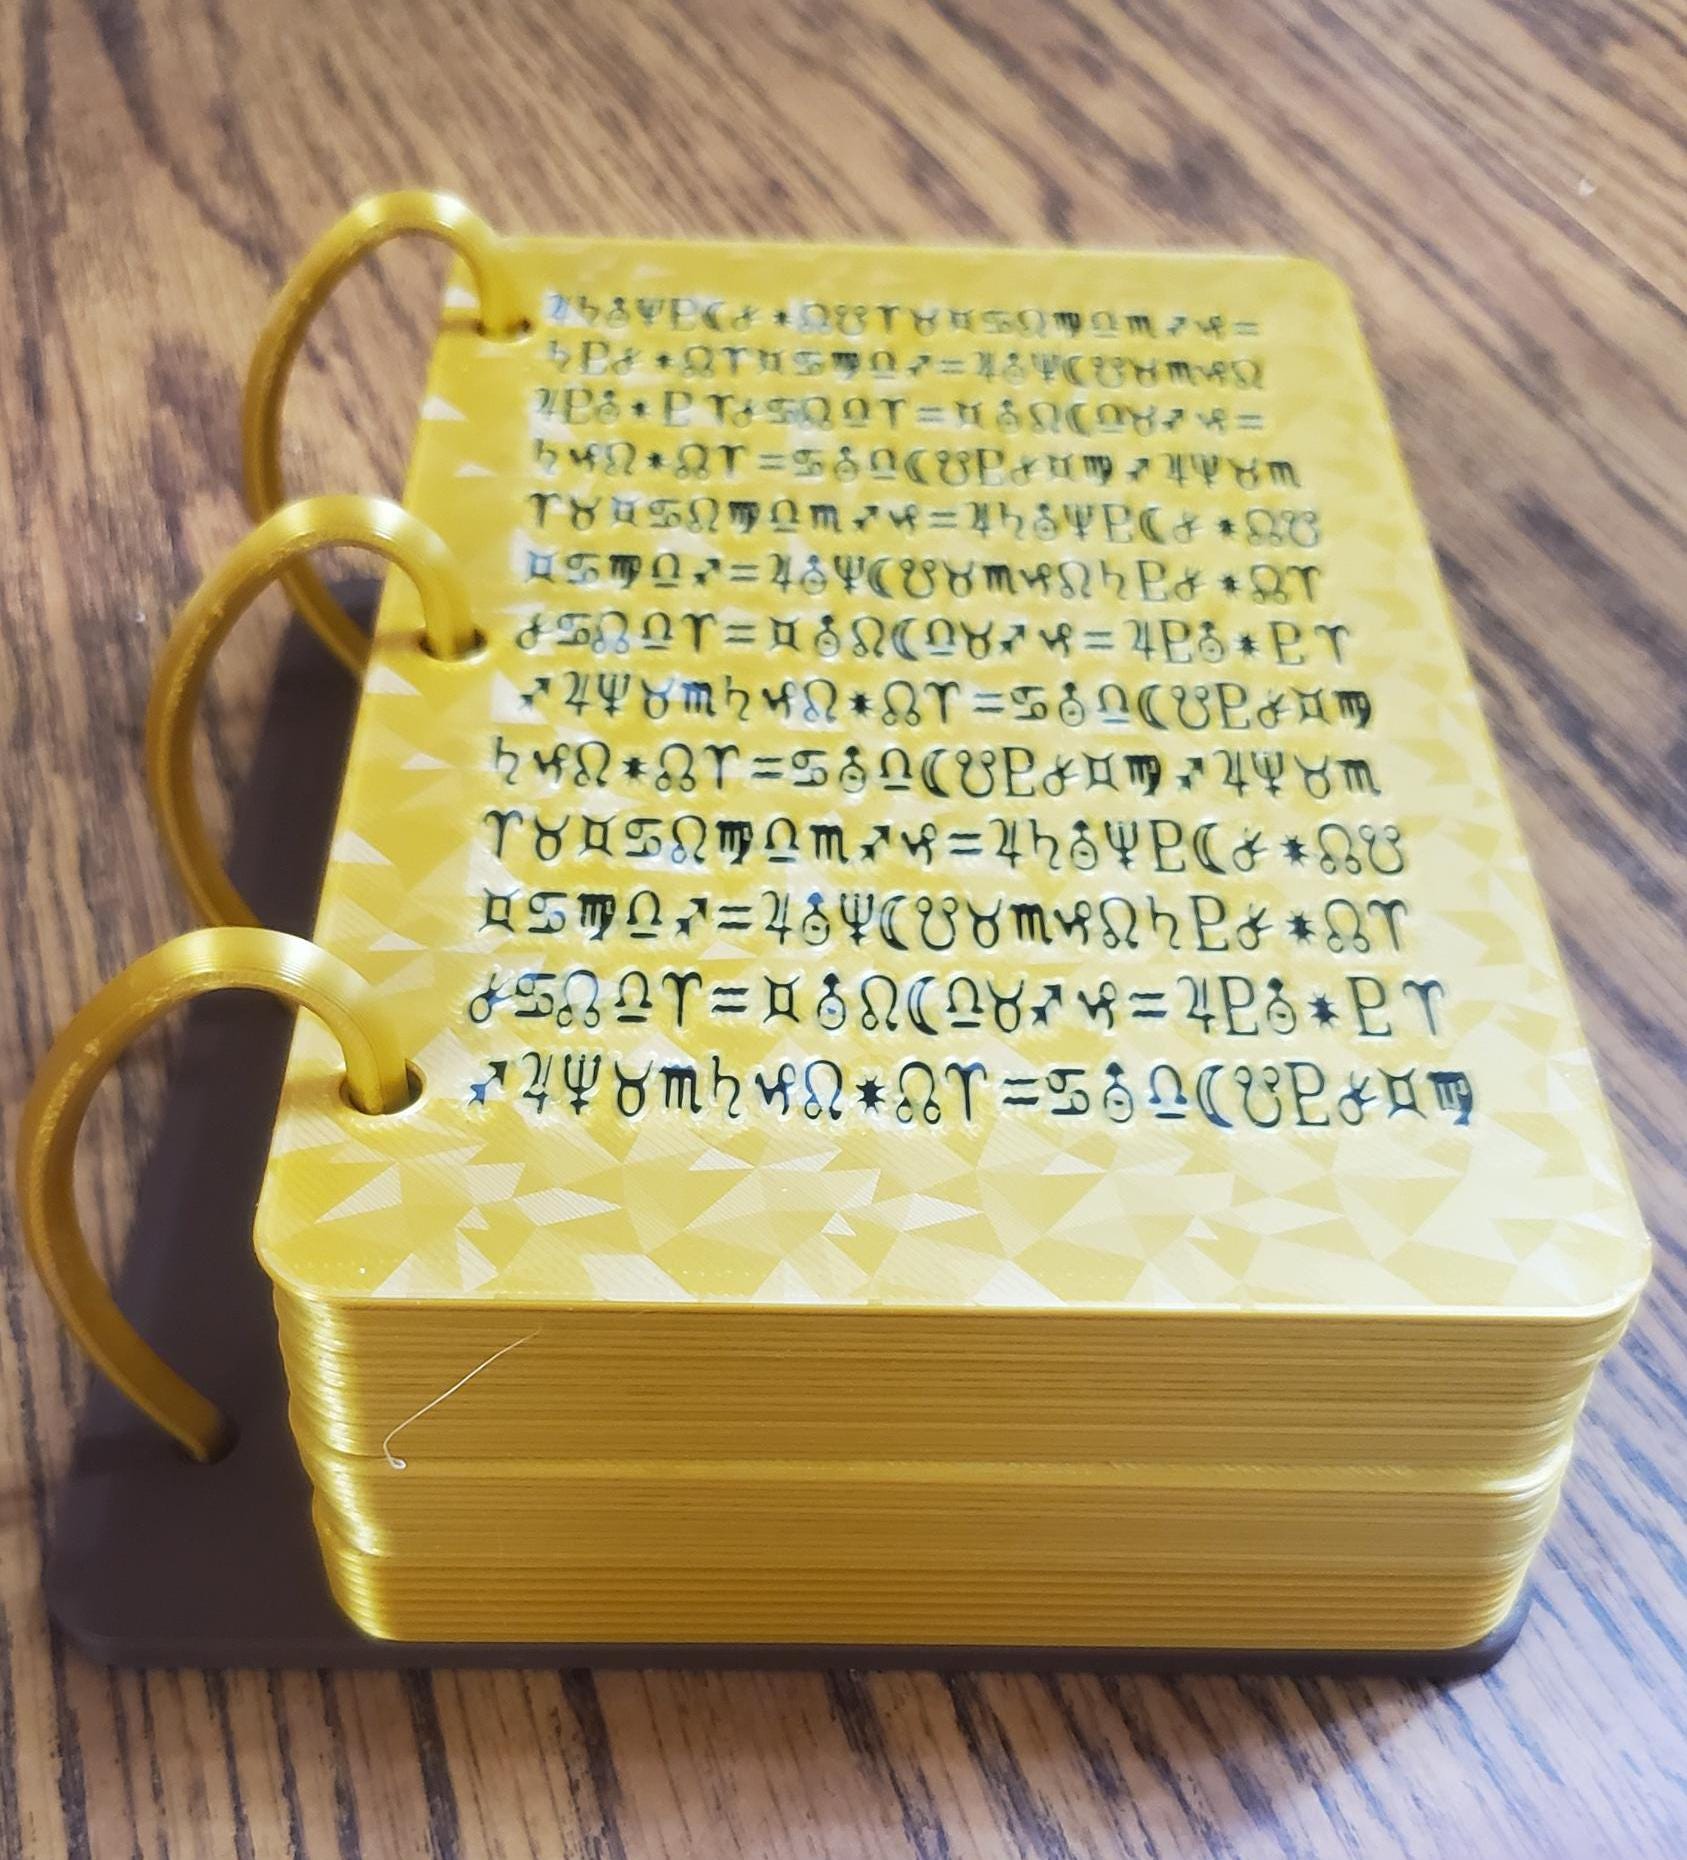 ♃♄⛢♆♇☾☌✶☊☋♈♉♊♋♌♍♎♏♐♑=
♄♇☌✶☊♈♊♋♍♎♐=♃⛢♆☾☋♉♏♑♌
♃♇⛢✶♇♈☌♋☊♎♈=♊⛢♌☾♎♉♐♑=
♄♑♌✶☊♈=♋⛢♎☾☋♇☌♊♍♐♃♆♉♏
♈♉♊♋♌♍♎♏♐♑=♃♄⛢♆♇☾☌✶☊☋
♊♋♍♎♐=♃⛢♆☾☋♉♏♑♌♄♇☌✶☊♈
☌♋☊♎♈=♊⛢♌☾♎♉♐♑=♃♇⛢✶♇♈
♐♃♆♉♏♄♑♌✶☊♈=♋⛢♎☾☋♇☌♊♍
♄♑♌✶☊♈=♋⛢♎☾☋♇☌♊♍♐♃♆♉♏
♈♉♊♋♌♍♎♏♐♑=♃♄⛢♆♇☾☌✶☊☋
♊♋♍♎♐=♃⛢♆☾☋♉♏♑♌♄♇☌✶☊♈
☌♋☊♎♈=♊⛢♌☾♎♉♐♑=♃♇⛢✶♇♈
♐♃♆♉♏♄♑♌✶☊♈=♋⛢♎☾☋♇☌♊♍